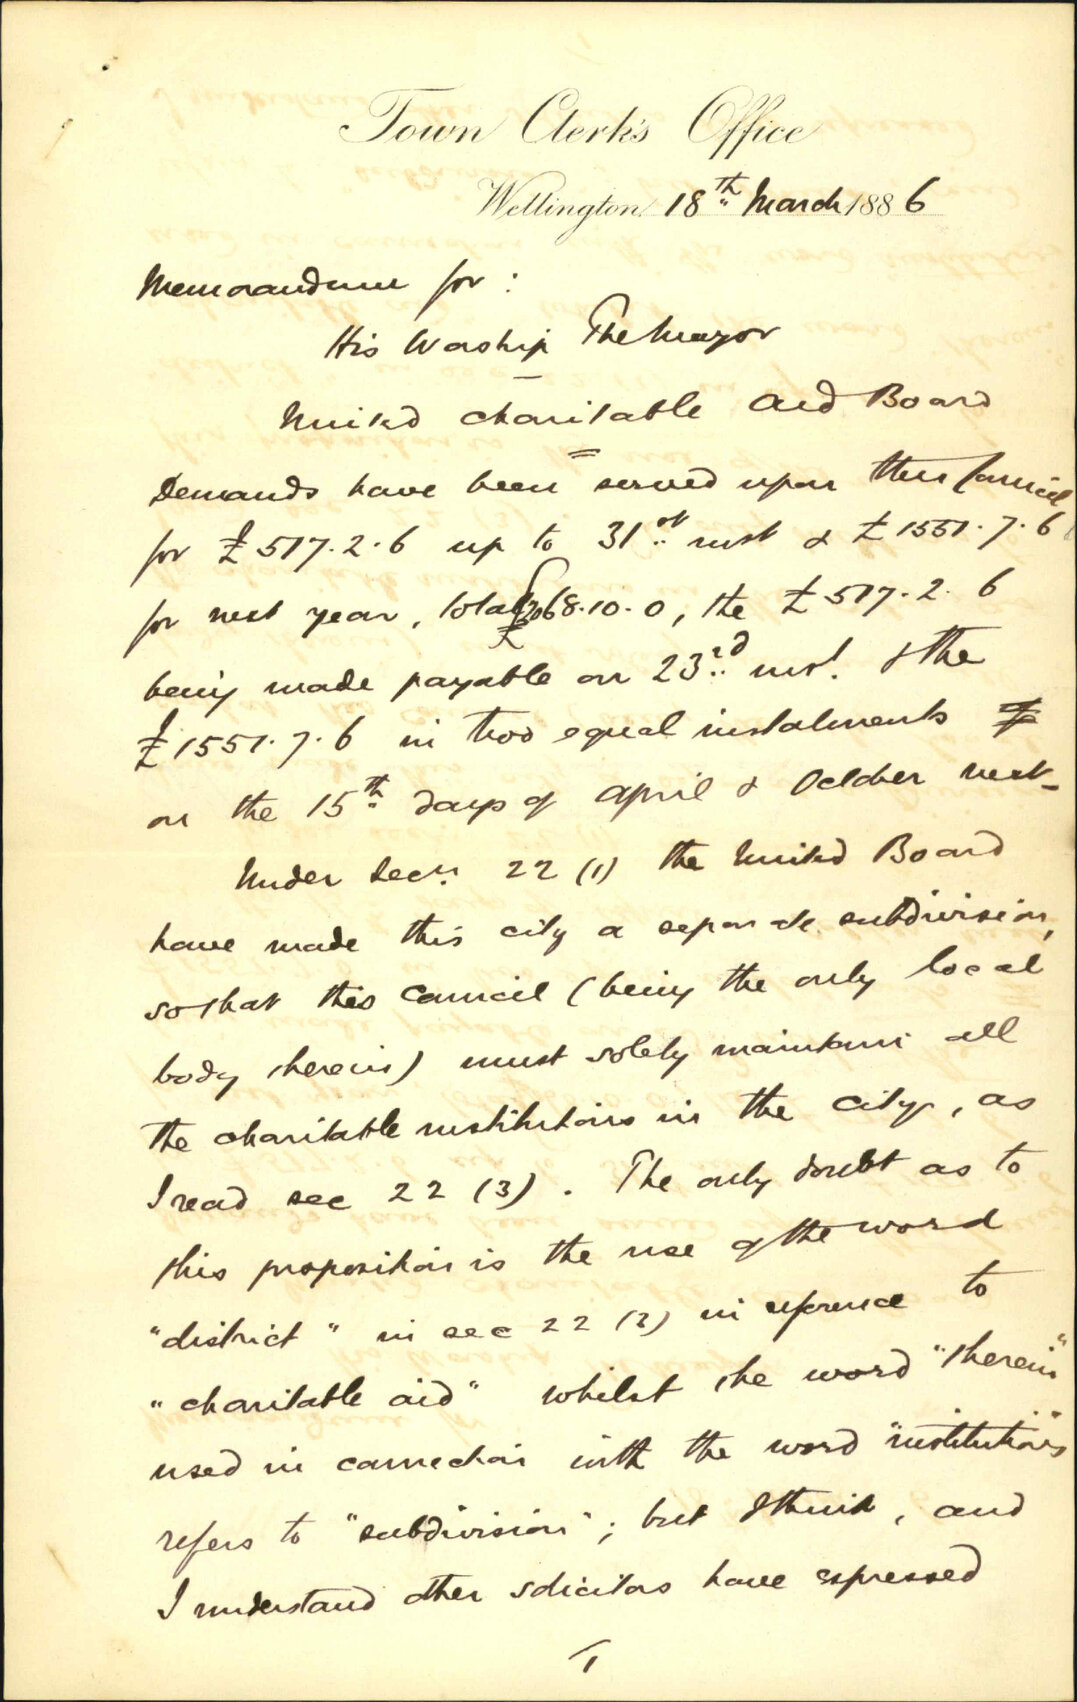 Town Clerk's Office
Wellington 18th March 1886
Memorandum for :
His Worship The Mayor
United Charitable Aid Board
Demands have been served upon this Council
for £517.2.6 up to 31st inst & £1551.7.6
for next year, total £2068.10.0, the £517.2.6
being made payable on 23rd inst. & the
£1551.7.6 in two equal instalments
on the 15th days of April & October next.
Under Secn. 22 (1) the United Board
have made this city a separate subdivision,
so that this Council (being the only local
body therein) must solely maintain all
the charitable institutions in the city, as
I read sec 22 (3). The only doubt as to
this proposition is the use of the word
"district" in sec 22 (2) in reference to
"charitable aid" whilst the word "therein"
used in connection with the word "institutions"
refers to "subdivision"; but I think, and
I understand other solicitors have expressed
1